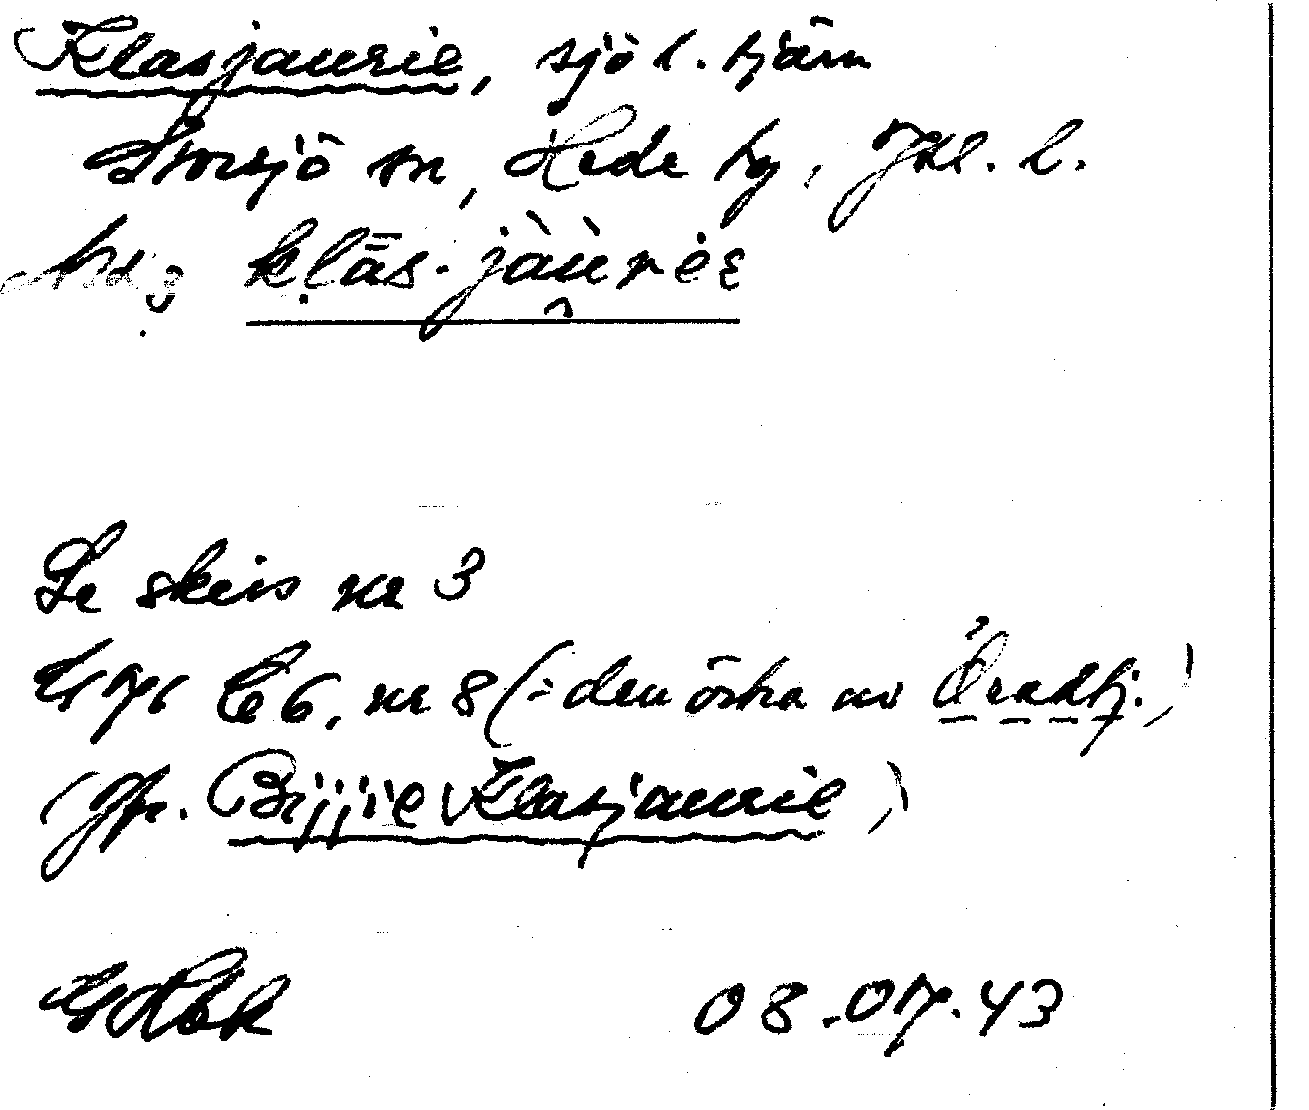 Klasjaurie, sjö l. tjärn
Storsjö sn, Hede tg, Jtl. l.
klās. jàùrėɛ
Se skiss nr 3
C6, nr 8 (= den östra av Öradtj.)
(Jfr. Bijjie Klasjaurie)
08.07.43